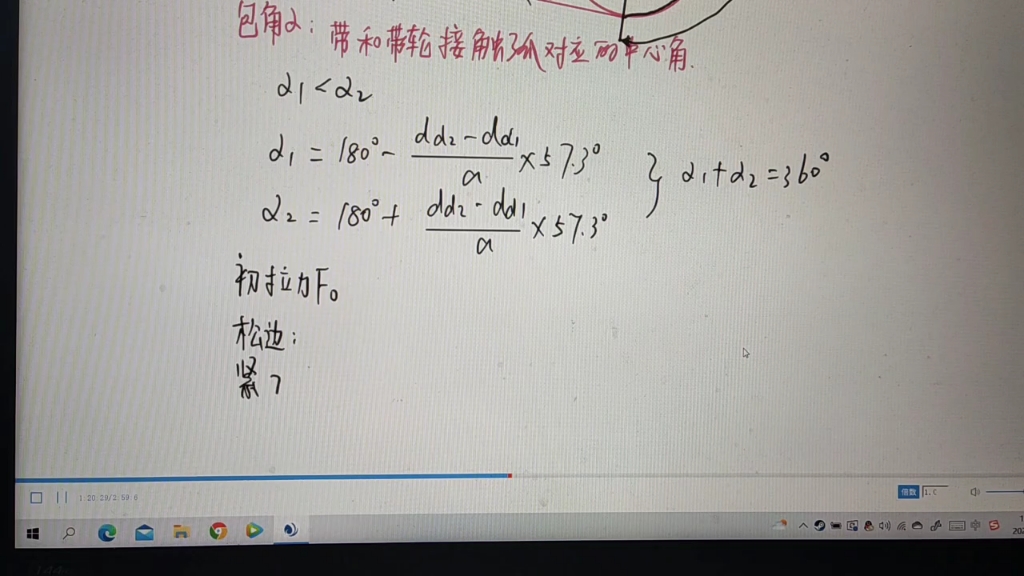 包角α：带和带轮接触弧对应的中心角.
α₁<α₂
α₁=180°-(dd₂-dd₁)/a×57.3°
α₂=180°+(dd₂-dd₁)/a×57.3°
} α₁+α₂=360°
初拉力F₀
松边：
紧
倍数